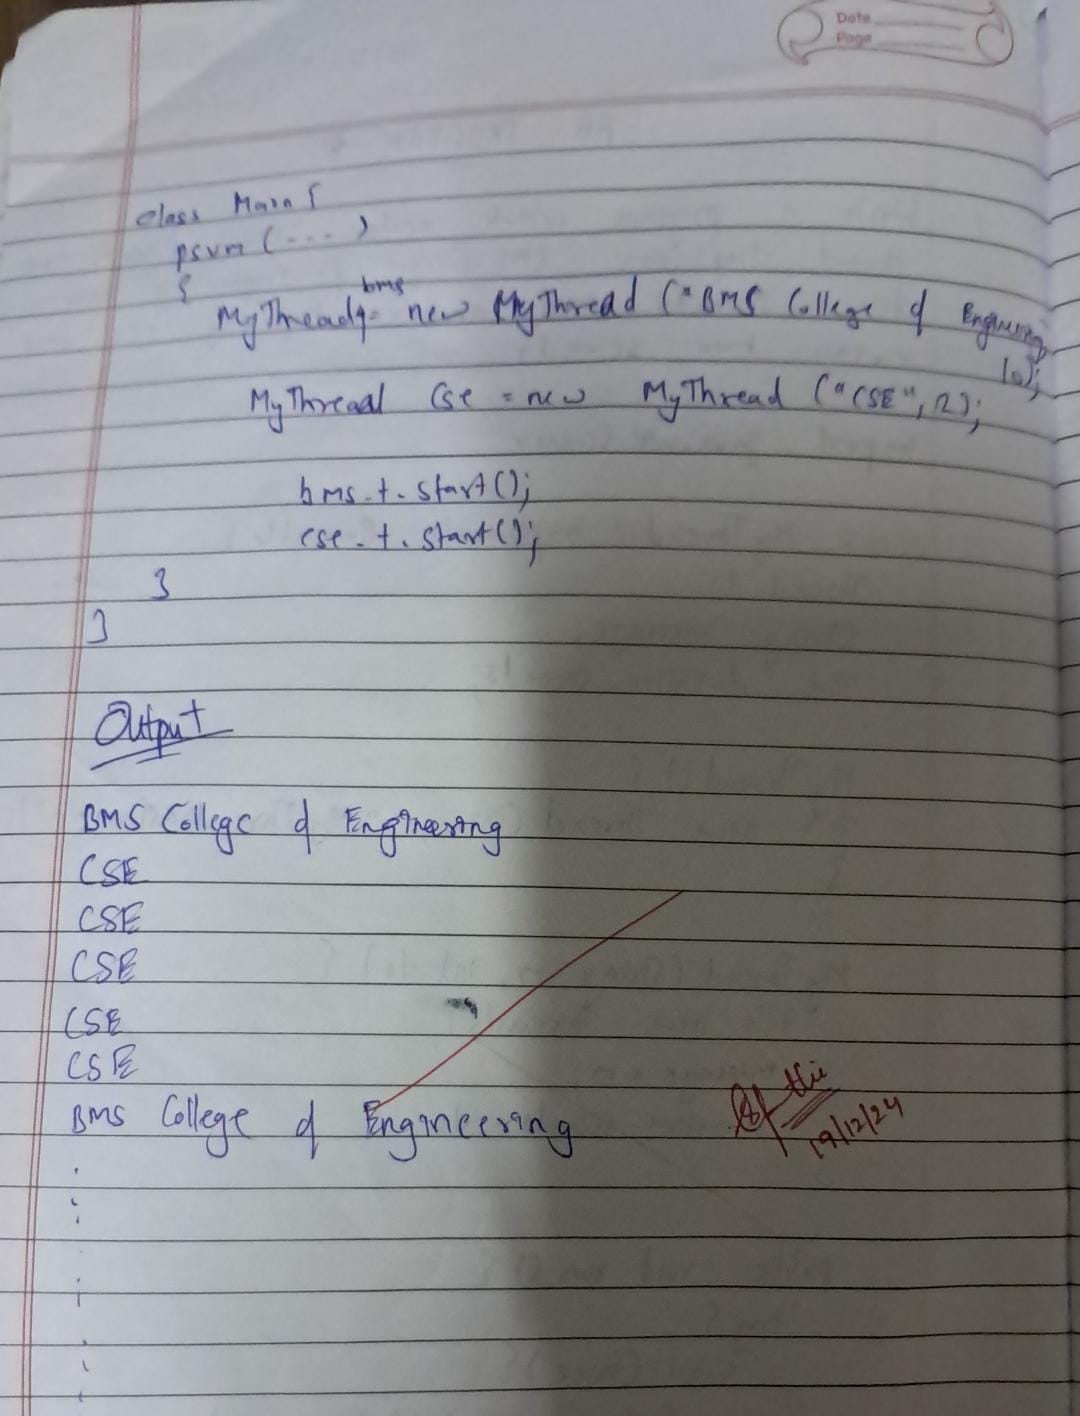 Date
Page
class Main {
psvm (...)
{
MyThread bms = new MyThread ("BMS College of Engineering
10);
MyThread cse = new MyThread ("CSE", 2);
bms.t.start();
cse.t.start();
}
}
Output
BMS College of Engineering
CSE
CSE
CSE
CSE
CSE
BMS College of Engineering
19/12/24